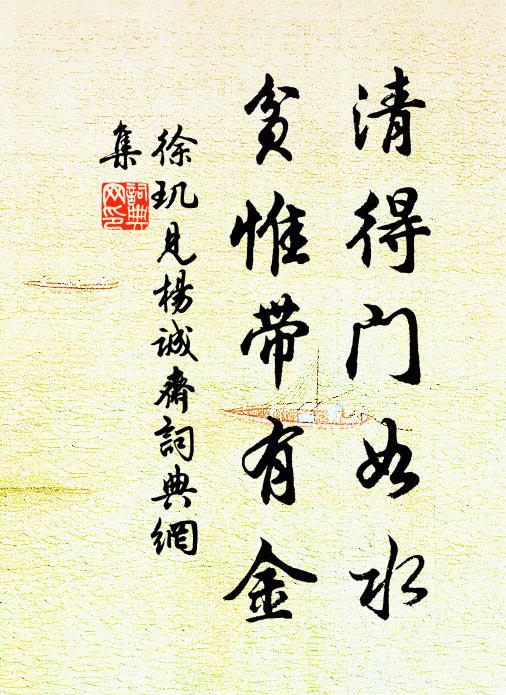 清得门如水
贫惟带有金
徐玑见杨诚斋词典網
集
詞典
网印